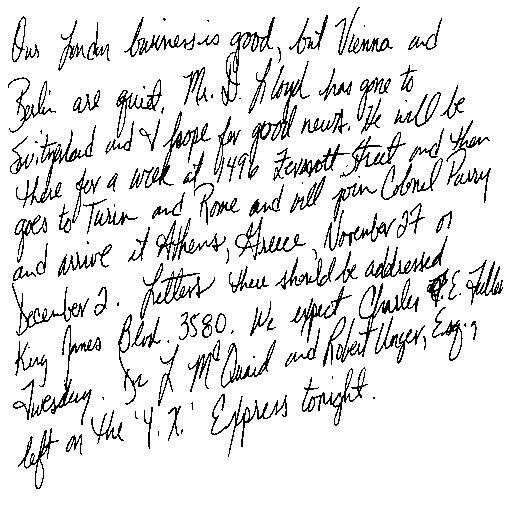 Our London business is good, but Vienna and
Berlin are quiet. Mr. D. Lloyd has gone to
Switzerland and I hope for good news. He will be
there for a week at 1496 Zermott Street and then
goes to Turin and Rome and will join Colonel Parry
and arrive at Athens, Greece, November 27 or
December 2. Letters there should be addressed
King James Blvd. 3580. We expect Charles E. Fuller
Tuesday. Dr. L McQuaid and Robert Unger, Esq.,
left on the 'Y. X.' Express tonight.